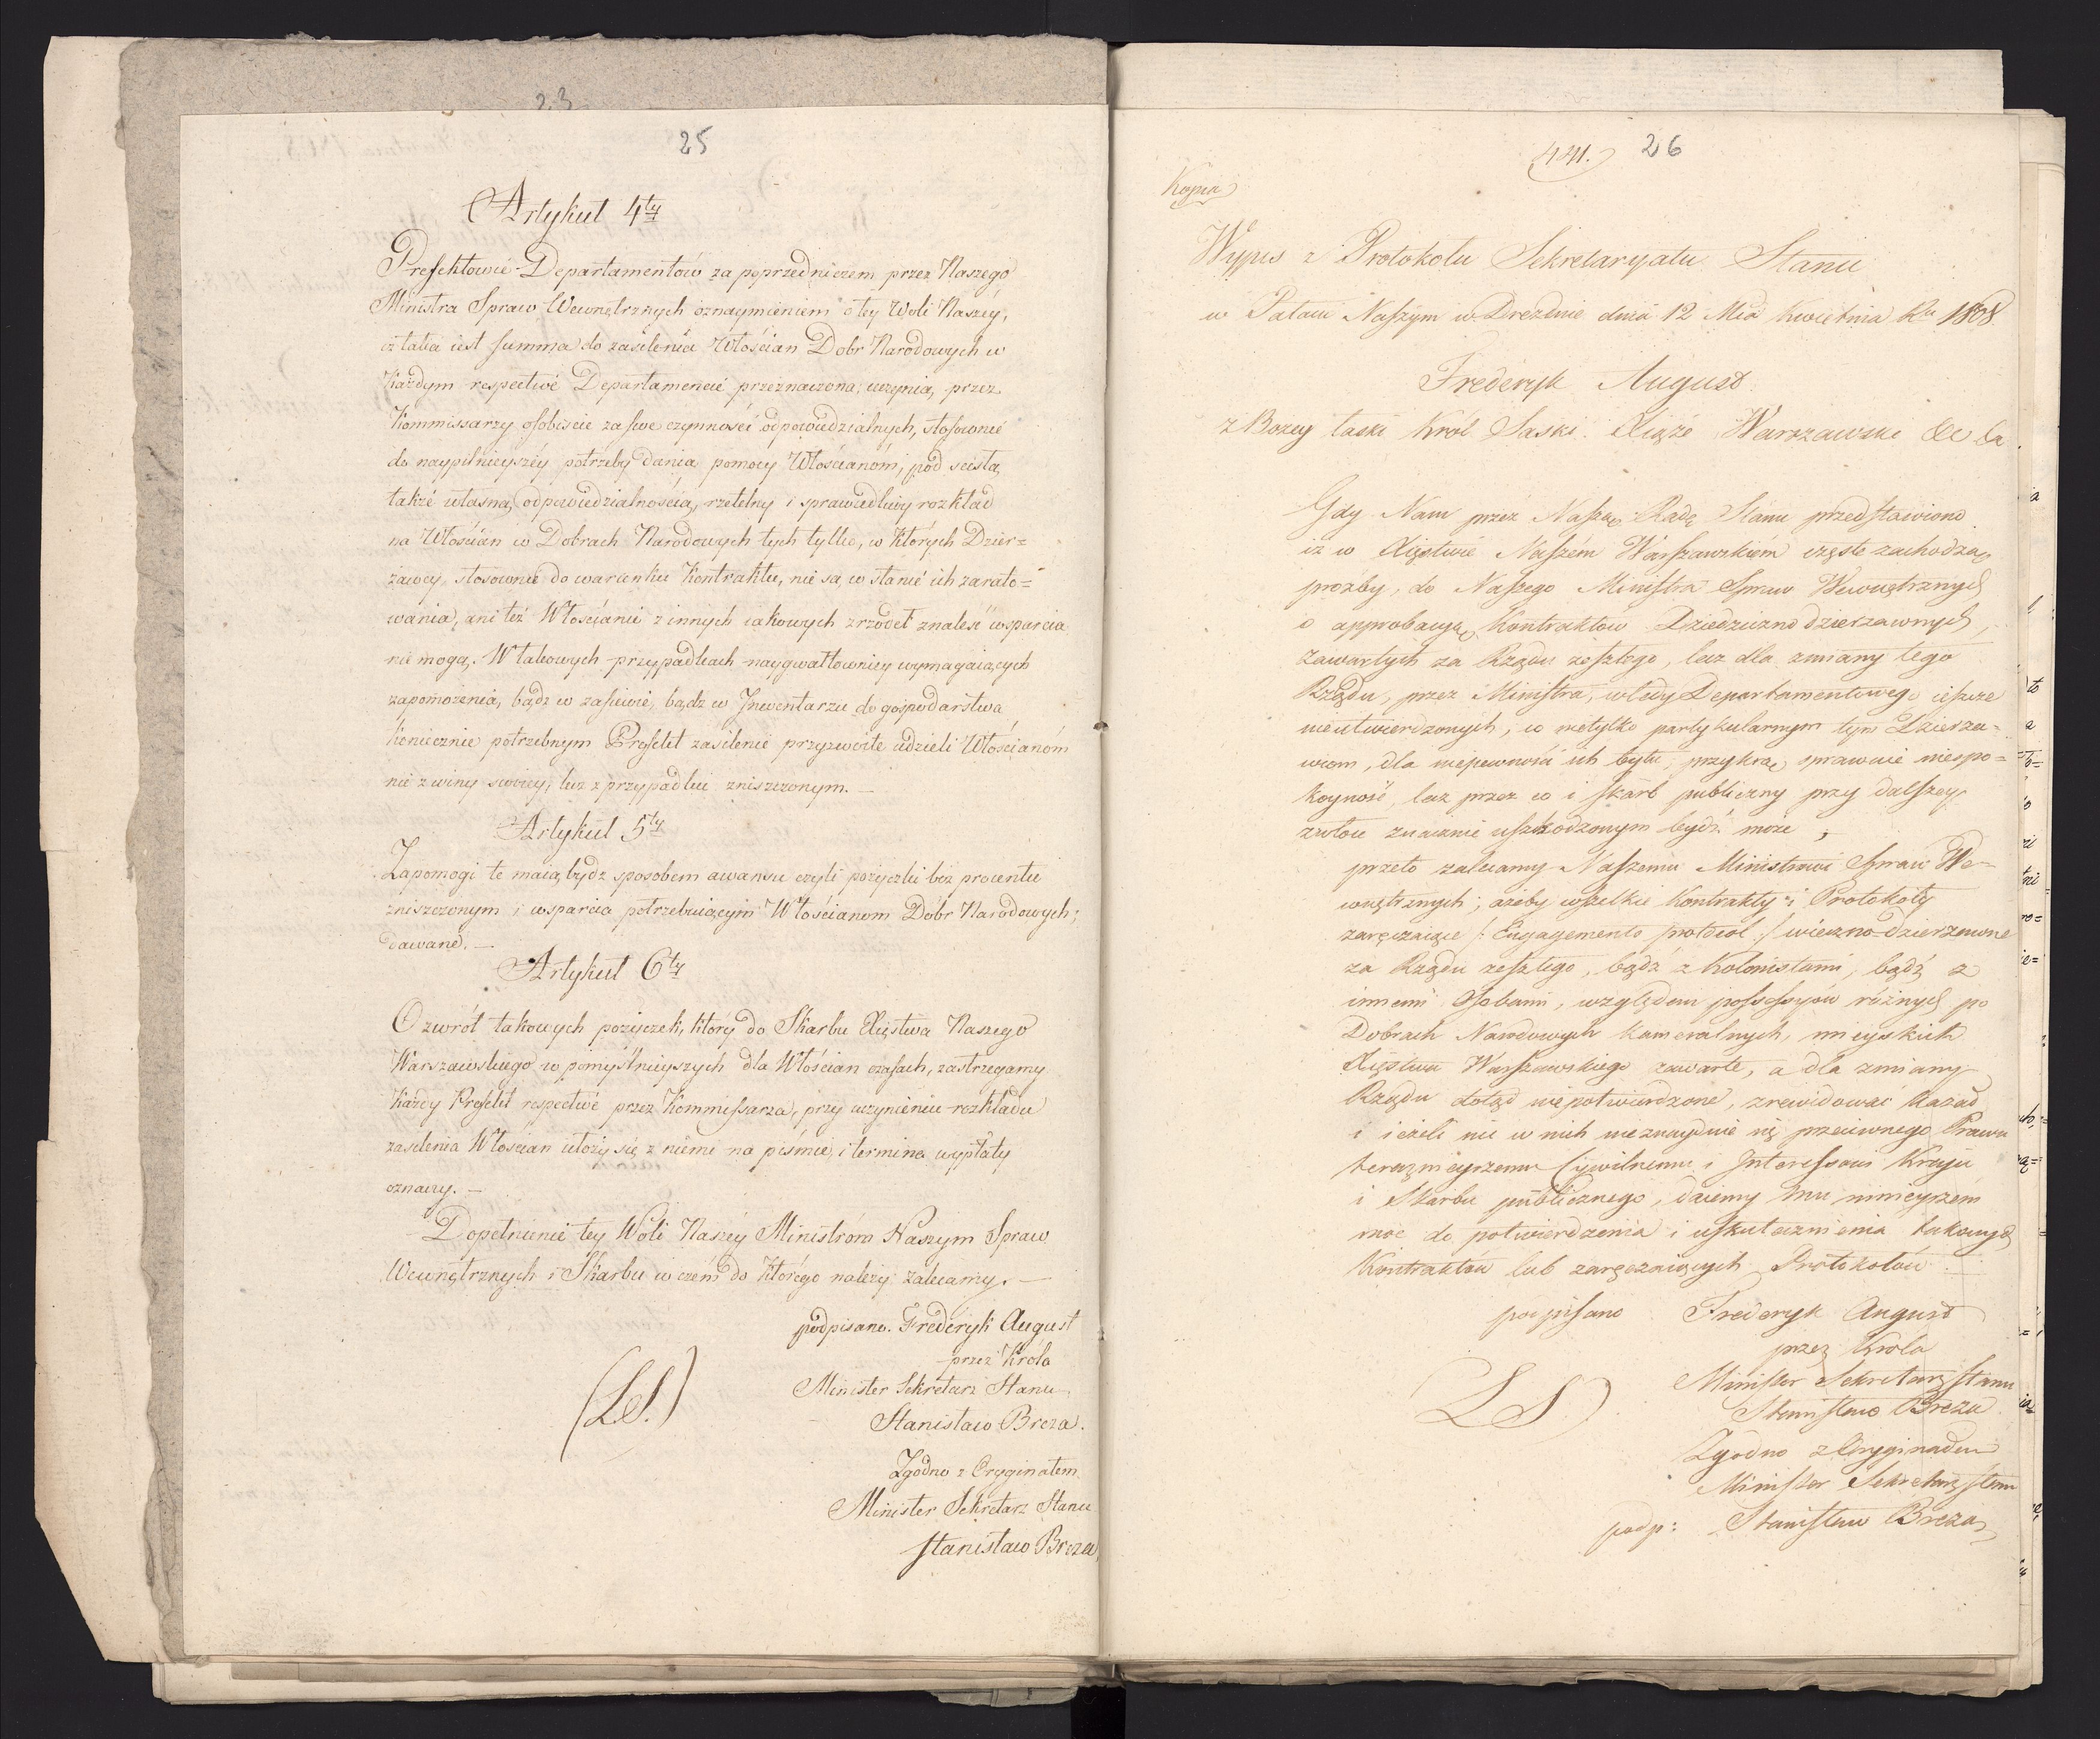 23
25
Artykuł 4ty
Prefektowie Departamentów za poprzedniczem przez Naszego
Ministra Spraw Wewnętrznych oznaymieniem o tey Woli Naszéy,
iż taka iest summa do zasilenia Włościan Dobr Narodowych w
Każdym respective Departamencie przeznaczona, uczynią, przez
Kommissarzy osobiscie za swe czynności odpowiedzialnych, stosownie
do naypilnieyszéy potrzeby dania pomocy Włościanóm, pod scisłą
także własną odpowiedzialnością, rzetelny i sprawiedliwy rozkład
na Włościan w Dobrach Narodowych tych tylko, w których Dzier=
żawcy stosownie do warunku Kontraktu, nie są w stanie ich zarato=
wania, ani też Włościanie z innych iakowych zrzódeł znaleść wsparcia
nie mogą. W takowych przypadkach naygwałtowniey wymagaiących
zapomożenia, bądz w zasiewie, bądz w Inwentarzu do gospodarstwa
koniecznie potrzebnym Prefekt zasilenie przyzwoite udzieli Włościanóm
nie z winy swoiey, lecz z przypadku zniszczonym. —
Artykuł 5ty
Zapomogi te maią bydz sposobem awansu czyli pożyczki bez procentu
zniszczonym i wsparcia potrzebuiącym Włościanom Dóbr Narodowych,
dawane. —
Artykuł 6ty
O zwrót takowych pożyczek, który do Skarbu Xięstwa Naszego
Warszawskiego w pomyślnieyszych dla Włościan czasach, zastrzegamy
Każdy Prefekt respective przez Kommissarza, przy uczynieniu rozkładu
zasilenia Włoscian ułoży się z niemi na piśmie, i termina wypłaty
oznaczy. —
Dopełnienie tey Woli Naszéy Ministróm Naszym Spraw
Wewnętrznych i Skarbu w czém do którego należy zalecamy. —
podpisano. Frederyk August
przez Króla
Minister Sekretarz Stanu
(L.S.)
Stanisław Breza.
Zgodno z Oryginałem
Minister Sekretarz Stanu
Stanisław Breza
441. 26
Kopia
Wypis z Protokołu Sekretaryatu Stanu
w Pałacu Naszym w Dreźnie dnia 12 Mca Kwietnia Ru 1808
Frederyk August
z Bożey łaski Król Saski Xiąże Warszawski &c &c
Gdy Nam przez Naszą Radę Stanu przedstawiono
iż w Xięstwie Naszém Warszawskiém częste zachodzą
proźby, do Naszego Ministra Spraw Wewnętrznych
o approbacyą Kontraktow Dziedziczno dzierzawnych,
zawartych za Rządu zeszłego, lecz dla zmiany tego
Rządu, przez Ministra, wtedy Departamentowego ieszcze
nieutwierdzonych, co nietylko partykularnym tym Dzierza-
wcom, dla niepewności ich bytu, przykrą sprawuie niespo=
koyność, lecz przez co i skarb publiczny przy dalszey
zwłoce znacznie uszkodzonym bydź może,
przeto zalecamy Naszemu Ministrowi Spraw We-
wnętrznych, ażeby wszelkie Kontrakty i Protokoły
zaręczaiące /: Engagements protocol :/ wieczno-dzierzawne
za Rządu zeszłego, bądź z Kolonistami, bądź z
innemi Osobami, względem possessyów różnych po
Dobrach Narodowych kameralnych, mieyskich
Xięstwa Warszawskiego zawarte, a dla zmiany
Rządu dotąd niepotwierdzone, zrewidować kazał
i ieżeli nic w nich nieznayduie się przeciwnego Prawu
teraznieyszemu Cywilnemu i Interessowi Kraju
i Skarbu publicznego, daiemy mu ninieyszém
moc do potwierdzenia i uskutecznienia takowych
Kontraktów lub zaręczaiących Protokołów
podpisano Frederyk August
przez Króla
Minister Sekretarz Stanu
L S
Stanisław Breza
Zgodno z Oryginałem
Minister Sekretarz Stanu
podp: Stanisław Breza